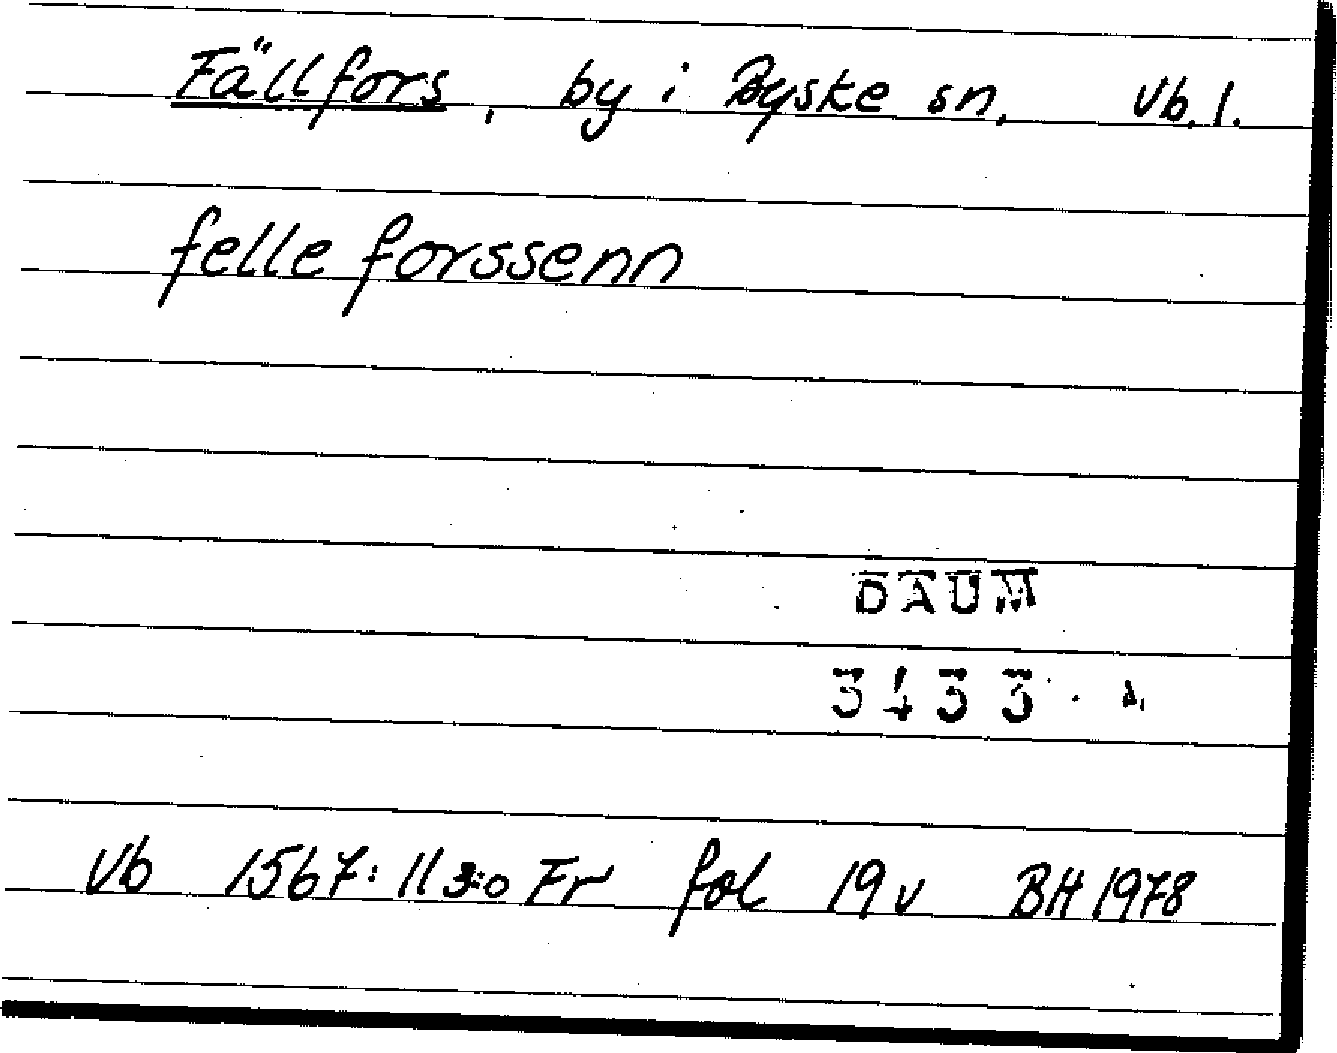 Fällfors, by i Byske sn, Vb. l.
felle forssenn
DAUM
3433
Vb 1567: 11 3:0 Fr fol 19 v BH 1978